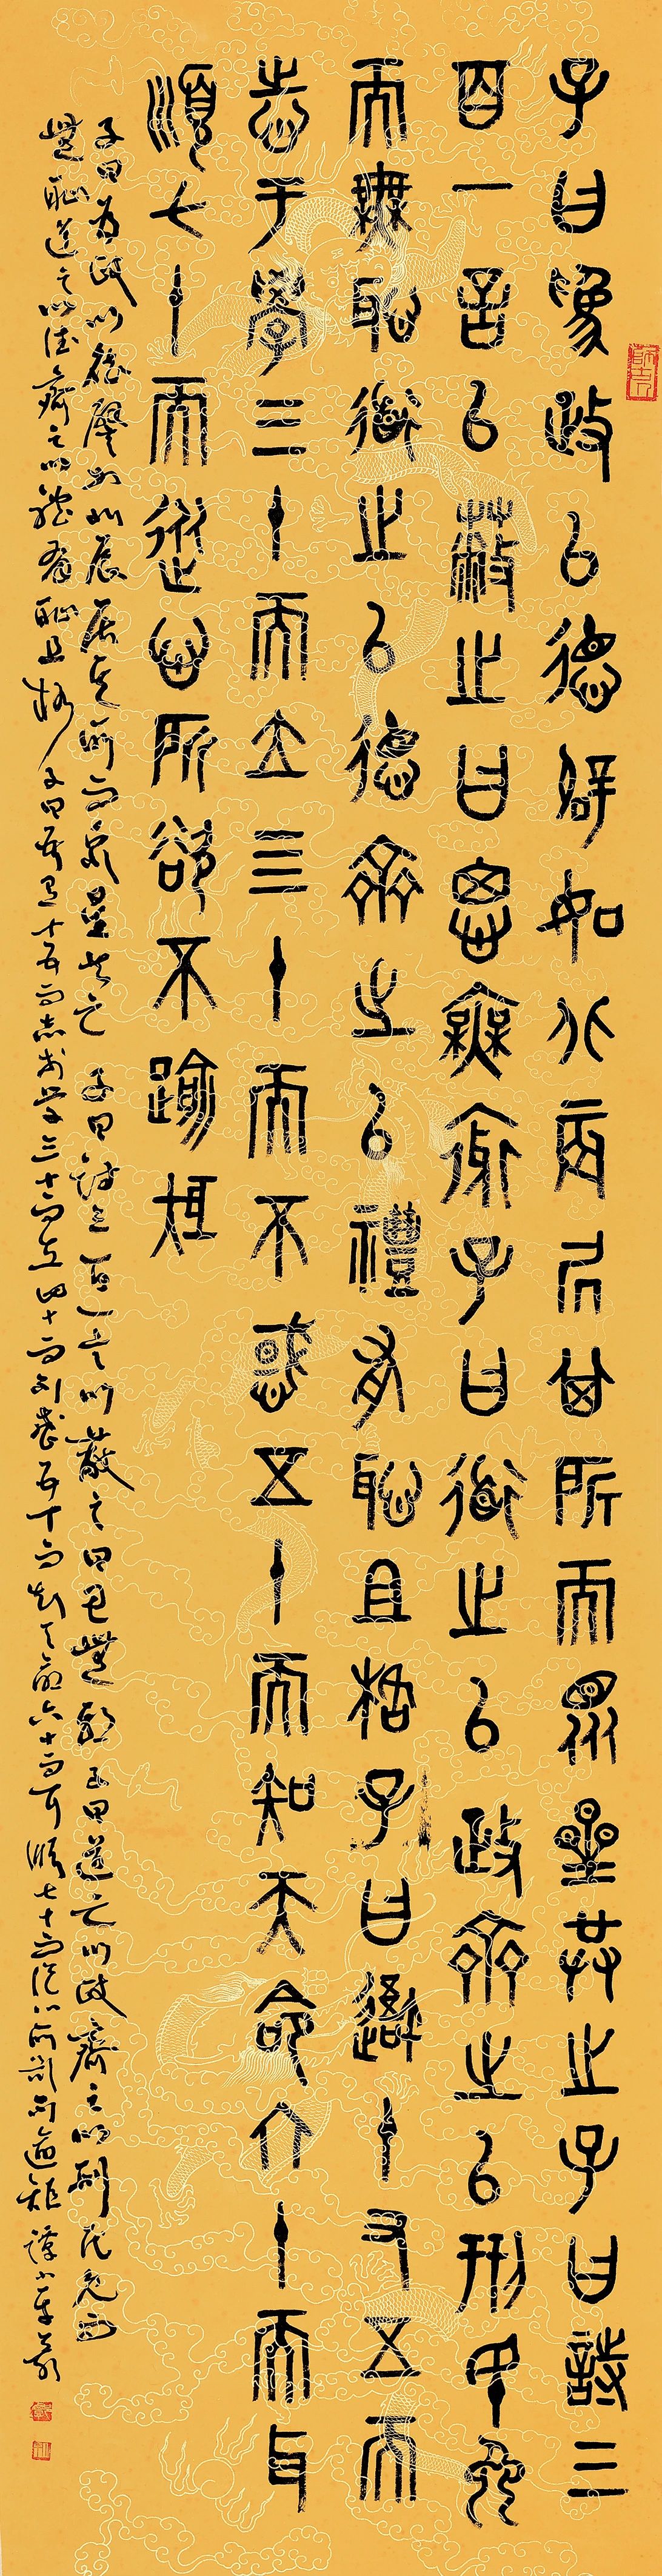 子曰為政以德辟如北辰居其所而眾星共之子曰詩三
百一言以蔽之曰思無邪子曰道之以政齊之以刑民免
而無恥道之以德齊之以禮有恥且格子曰吾十又五而
志于學三十而立四十而不惑五十而知天命六十而耳
順七十而從心所欲不踰矩
子曰為政以德譬如北辰居其所而眾星共之子曰詩三百一言以蔽之曰思無邪子曰道之以政齊之以刑民免而
無恥道之以德齊之以禮有恥且格子曰吾有十五而志於學三十而立四十而不惑五十而知天命六十而耳順七十而從心所欲不逾矩